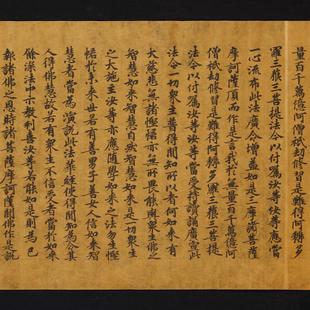 量百千萬億阿僧祇劫修習是難得阿耨多
羅三藐三菩提法今以付囑汝等汝等應當
一心流布此法廣令增益如是三摩諸菩薩
摩訶薩頂而作是言我於無量百千萬億阿
僧祇劫修習是難得阿耨多羅三藐三菩提
法今以付囑汝等汝等當受持讀誦廣宣此
法令一切眾生普得聞知所以者何如來有
大慈悲無諸慳悋亦無所畏能與眾生佛之
智慧如來智慧自然智慧如來是一切眾生
之大施主汝等亦應隨學如來之法勿生慳
悋於未來世若有善男子善女人信如來智
慧者當為演說此法華經使得聞知為令其
人得佛慧故若有眾生不信受者當於如來
餘深法中示教利喜汝等若能如是則為已
報諸佛之恩時諸菩薩摩訶薩聞佛作是說